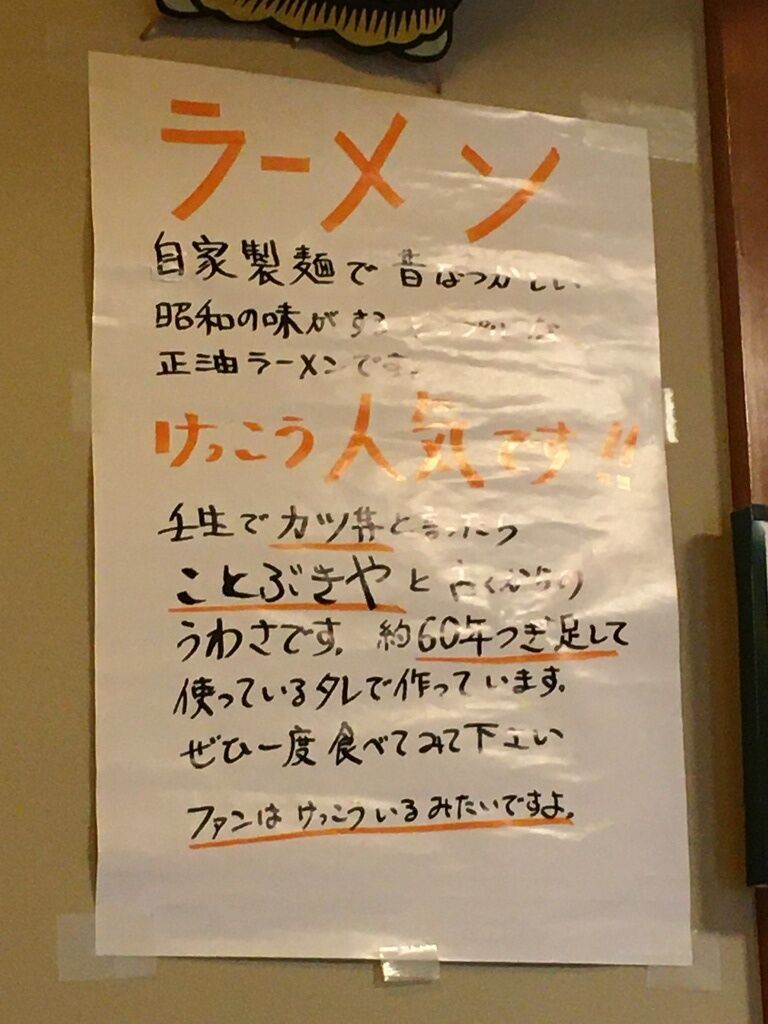 ラーメン
自家製麺で昔なつかしい
昭和の味がする
正油ラーメンです。
けっこう人気です!!
壬生でカツ丼と言ったら
ことぶきやと古くからの
うわさです。約60年つぎ足して
使っているタレで作っています。
ぜひ一度食べてみて下さい
ファンはけっこういるみたいですよ。